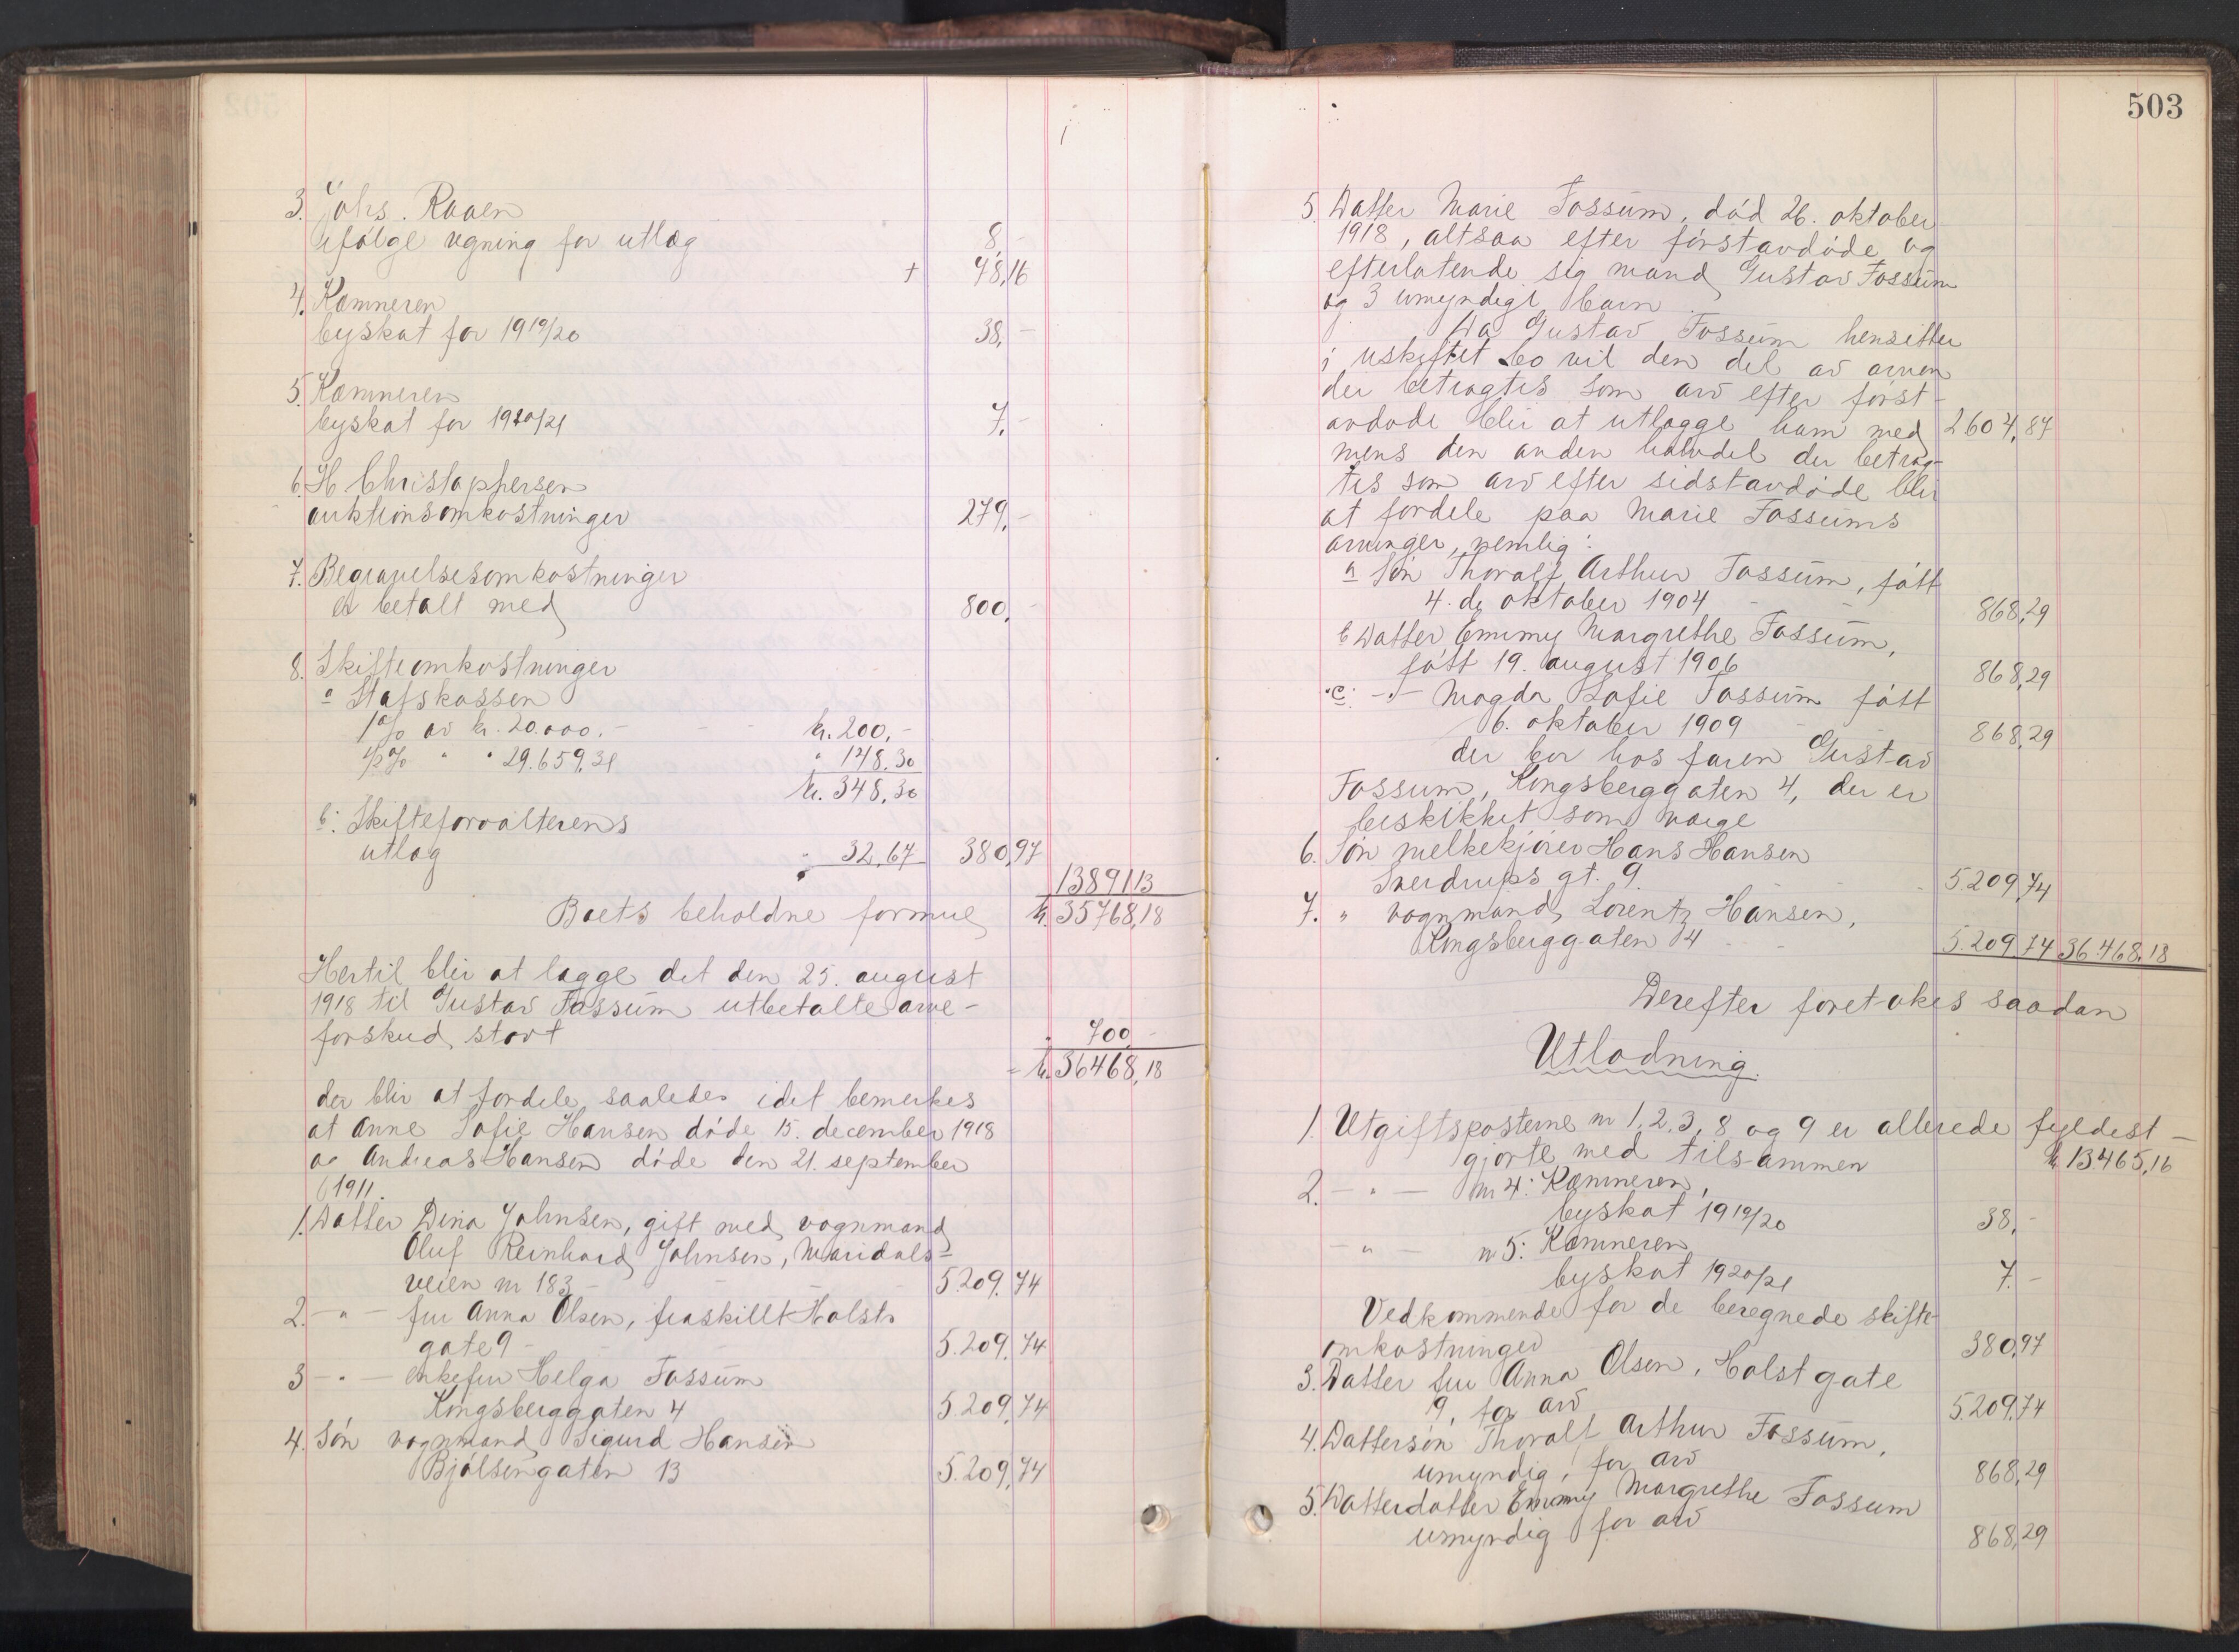 3. Johs. Raaen
ifølge regning for utlæg 8,-
+ 48,16
4. Kæmneren
byskat for 1919/20 38,-
5. Kæmneren
byskat for 1920/21 7,-
6. H Christophersen
auktionsomkostninger 279,-
7. Begravelsesomkostninger
er betalt med 800,-
8. Skifteomkostninger
a Statskassen
1 % av kr. 20.000.- - - kr. 200,-
1/2 % " " 29.659,31 " 148,30
kr. 348,30
b: Skifteforvalterens
utlæg " 32,67 380,97
13891 13
Boets beholdne formue kr. 35768,18
Hertil blir at lægge det den 25. august
1918 til Gustav Fossum utbetalte arve-
forskud stort " 700,-
= kr. 36468,18
der blir at fordele saaledes idet bemerkes
at Anne Sofie Hansen døde 15. december 1918
og Andreas Hansen døde den 21. september
1911.
1. Datter Dina Johnsen, gift med vognmand
Oluf Reinhard Johnsen, Maridals-
veien nr 183 - 5.209,74
2. - " - fru Anna Olsen, fraskilt Holsts
gate 9 - 5.209,74
3 - " - enkefru Helga Fossum
Kongsberggaten 4 5.209,74
4. Søn vognmand Sigurd Hansen
Bjølsengaten 13 5.209,74
503
5. Datter Marie Fossum, død 26. oktober
1918, altsaa efter førstavdøde og
efterlatende sig mand Gustav Fossum
og 3 umyndige barn.
Da Gustav Fossum hensitter
i uskiftet bo vil den del av arven
der betragtes som arv efter først-
avdøde blir at utlægge ham med 2604,87
mens den anden halvdel der betrag-
tes som arv efter sidstavdøde blir
at fordele paa Marie Fossums
arvinger, nemlig:
a Søn Thoralf Arthur Fossum, født
4. de oktober 1904 - - 868,29
b Datter Emmy Margrethe Fossum,
født 19. august 1906 868,29
c: - " - Magda Sofie Fossum født
6. oktober 1909 - 868,29
der bor hos faren Gustav
Fossum, Kongsberggaten 4, der er
beskikket som værge
6. Søn melkekjører Hans Hansen
Sverdrups gt. 9. - - 5.209,74
7. " vognmand Lorentz Hansen,
Kongsberggaten 4 - - 5.209,74 36.468,18
Derefter foretakes saadan
Utlodning.
1. Utgiftsposterne nr 1, 2, 3, 8 og 9 er allerede fyldest-
gjorte med tilsammen kr. 13465,16
2. - " - nr 4: Kæmneren,
byskat 1919/20 38,-
- " - nr 5: Kæmneren
byskat 1920/21 7.-
Vedkommende for de beregnede skifte-
omkostninger 380,97
3. Datter fru Anna Olsen, Holst gate
9, for arv 5.209,74
4. Dattersøn Thoralf Arthur Fossum,
umyndig, for arv 868,29
5. Datterdatter Emmy Margrethe Fossum
umyndig for arv 868,29